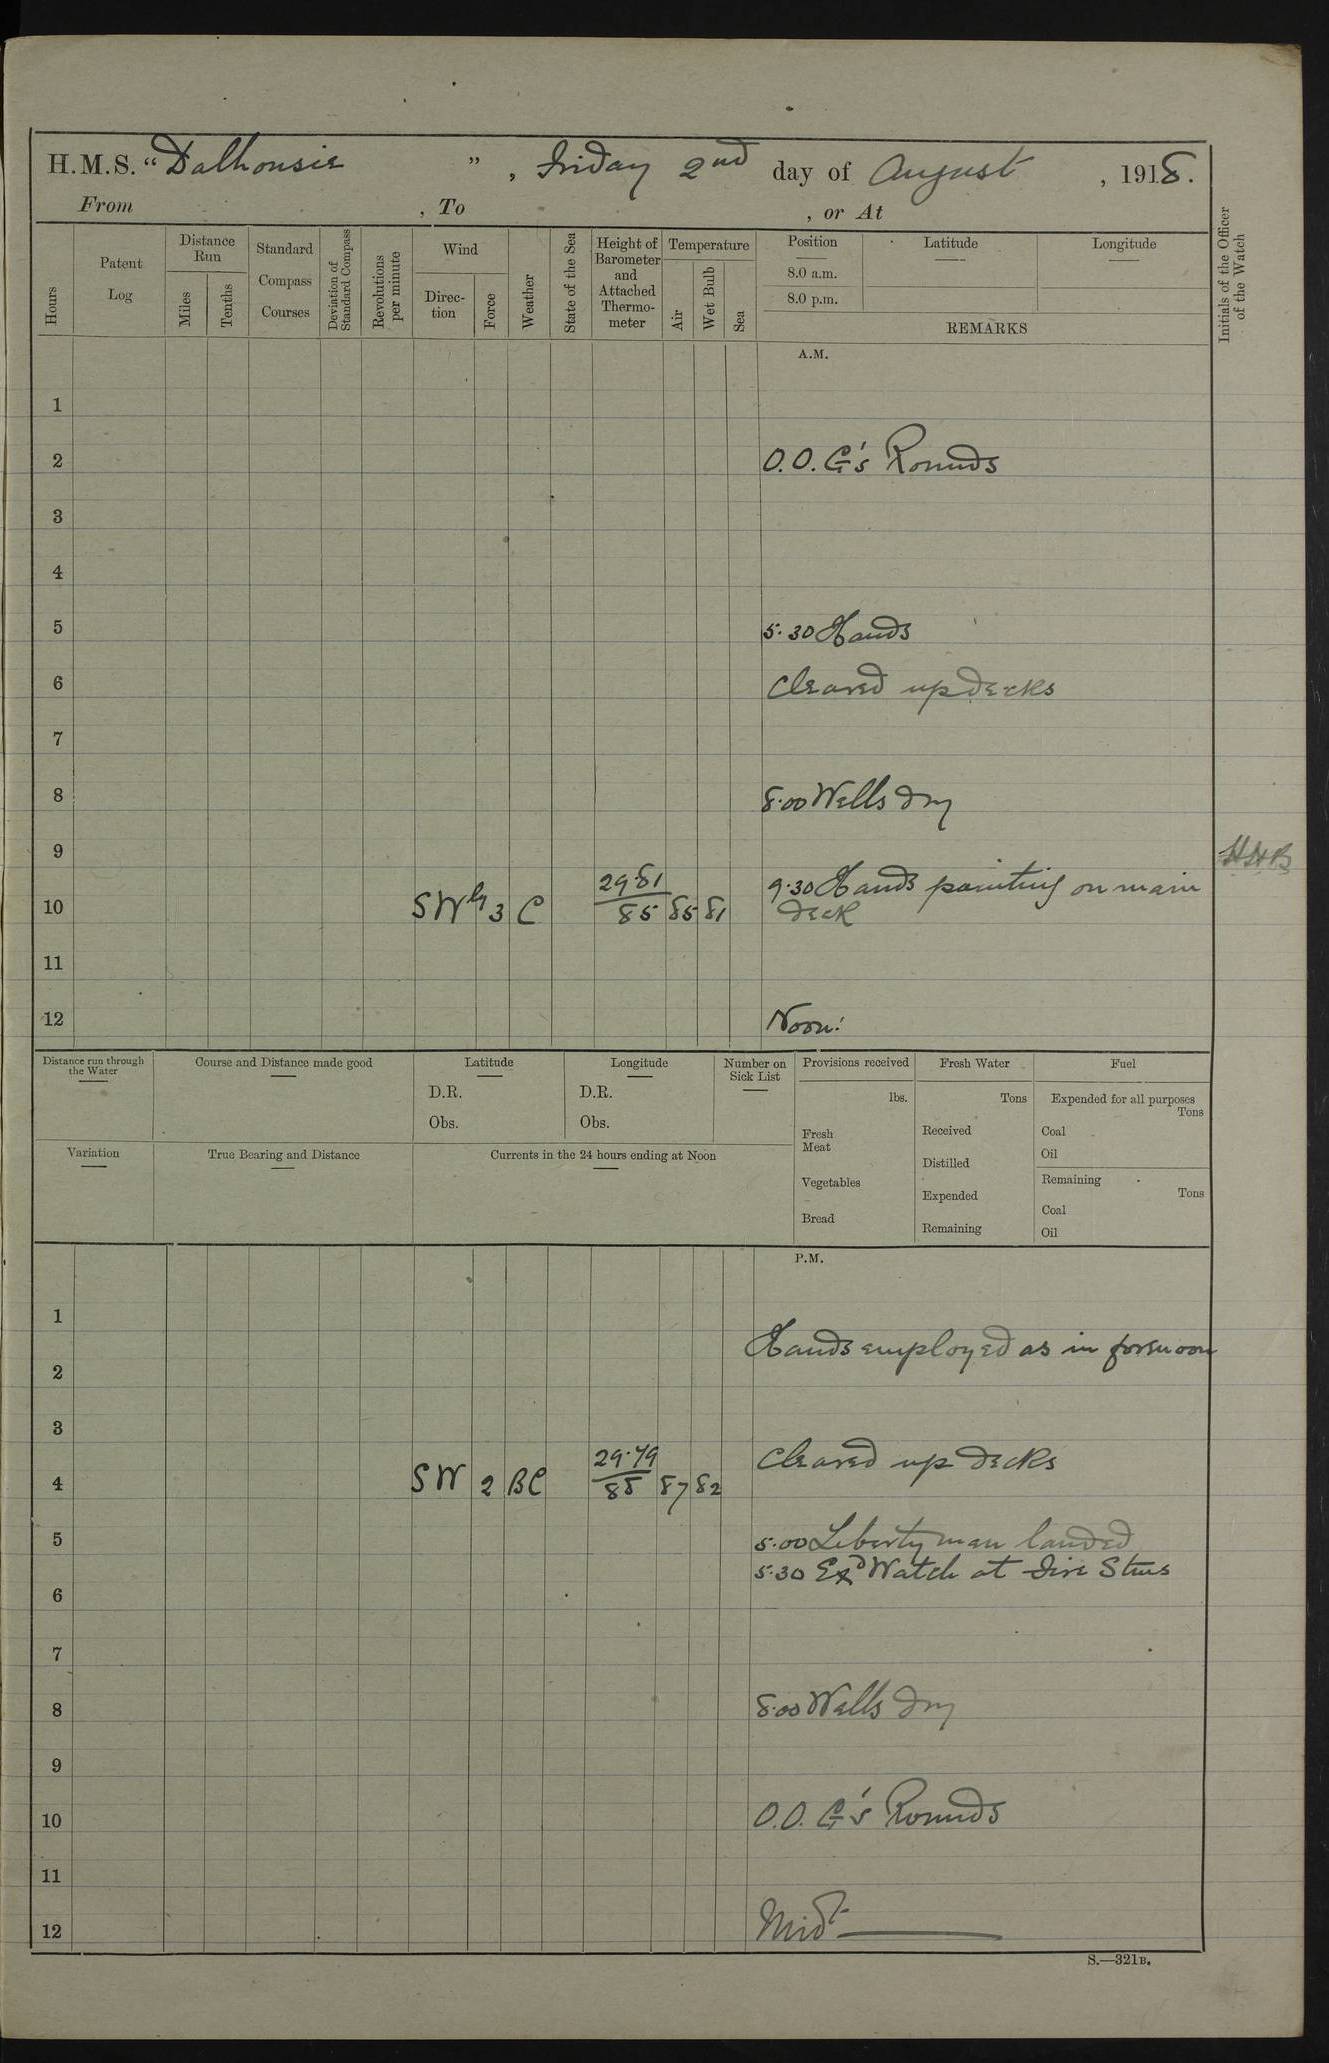 H.M.S. “Dalhousie”, Friday 2nd day of August, 1918.
From , To , or At
Hours
Patent Log
Distance Run
Miles
Tenths
Standard Compass Courses
Deviation of Standard Compass
Revolutions per minute
Wind
Direc-tion
Force
Weather
State of the Sea
Height of Barometer and Attached Thermo-meter
Temperature
Air
Wet Bulb
Sea
Position
8.0 a.m.
8.0 p.m.
Latitude
Longitude
REMARKS
Initials of the Officer of the Watch
A.M.
1
2 O.O.G's Rounds
3
4
5 5.30 Hands
6 Cleared up decks
7
8 8.00 Wells dry
9 HHB
29.81 9.30 Hands painting on main
10 SWly 3 C 85 85 81 deck
11
12 Noon:
Distance run through the Water
Course and Distance made good
Latitude
D.R.
Obs.
Longitude
D.R.
Obs.
Number on Sick List
Provisions received
lbs.
Fresh Meat
Vegetables
Bread
Fresh Water
Tons
Received
Distilled
Expended
Remaining
Fuel
Expended for all purposes
Tons
Coal
Oil
Remaining
Tons
Coal
Oil
Variation
True Bearing and Distance
Currents in the 24 hours ending at Noon
P.M.
1
Hands employed as in forenoon
2
3
29.79 Cleared up decks
4 SW 2 BC 88 87 82
5 5.00 Liberty men landed
5.30 Exd Watch at Fire Stns
6
7
8 8.00 Wells dry
9
10 O.O.G's Rounds
11
12 Midt
S.—321B.